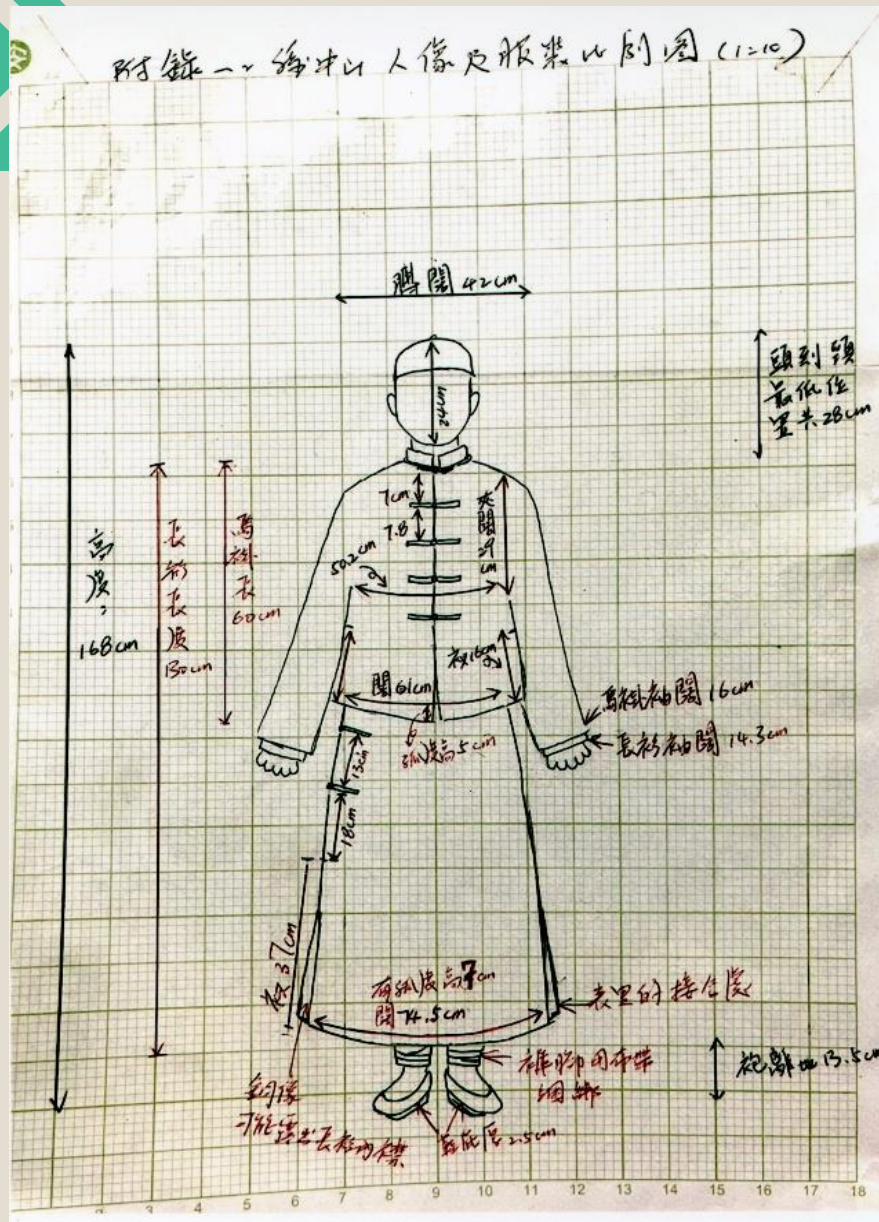 附錄一、孫中山人像及服裝比例圖 (1=10)
膊闊 42cm
頭到頸
最低位
置共28cm
24cm
7cm
7.8
夾闊 29cm
50.2cm
高度: 168cm
長衫長度 130cm
馬褂長 60cm
衩16cm
闊61cm
弧度高5cm
馬褂袖闊 16cm
長衫袖闊 14.3cm
13cm
18cm
衩37cm
有弧度高7cm
闊74.5cm
表里的接合處
袍離地13.5cm
褲腳用布帶
綑綁
銅像
可能露出長衫內襟
鞋底厚2.5cm
2 3 4 5 6 7 8 9 10 11 12 13 14 15 16 17 18